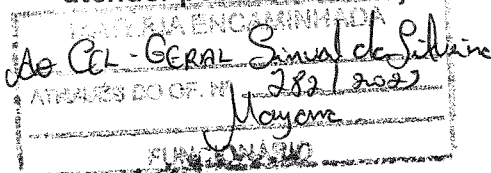 MATÉRIA ENCAMINHADA
Ao CCL - GERAL Sinval da Silveira
ATRAVÉS DO OF. Nº 282 / 2022
Mayara
FUNCIONÁRIO